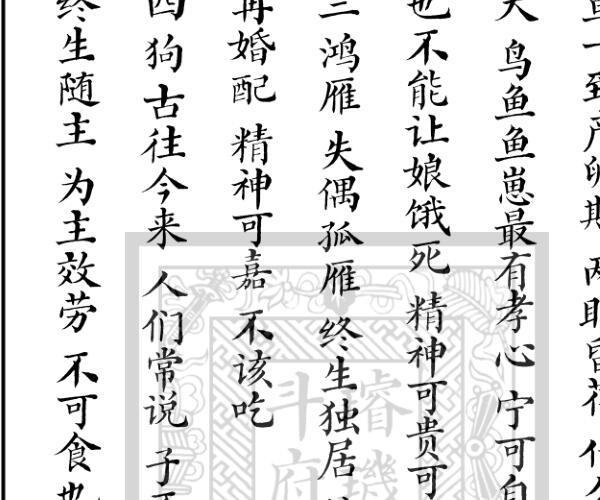 鱼一到产卵期 两眼昏花
鸟鱼鱼崽最有孝心 宁可自
也 不能让娘饿死 精神可贵可
三 鸿雁 失偶孤雁 终生独居
再婚配 精神可嘉 不该吃
四 狗 古往今来 人们常说 子不
终生随主 为主效劳 不可食也
斗府
璇玑